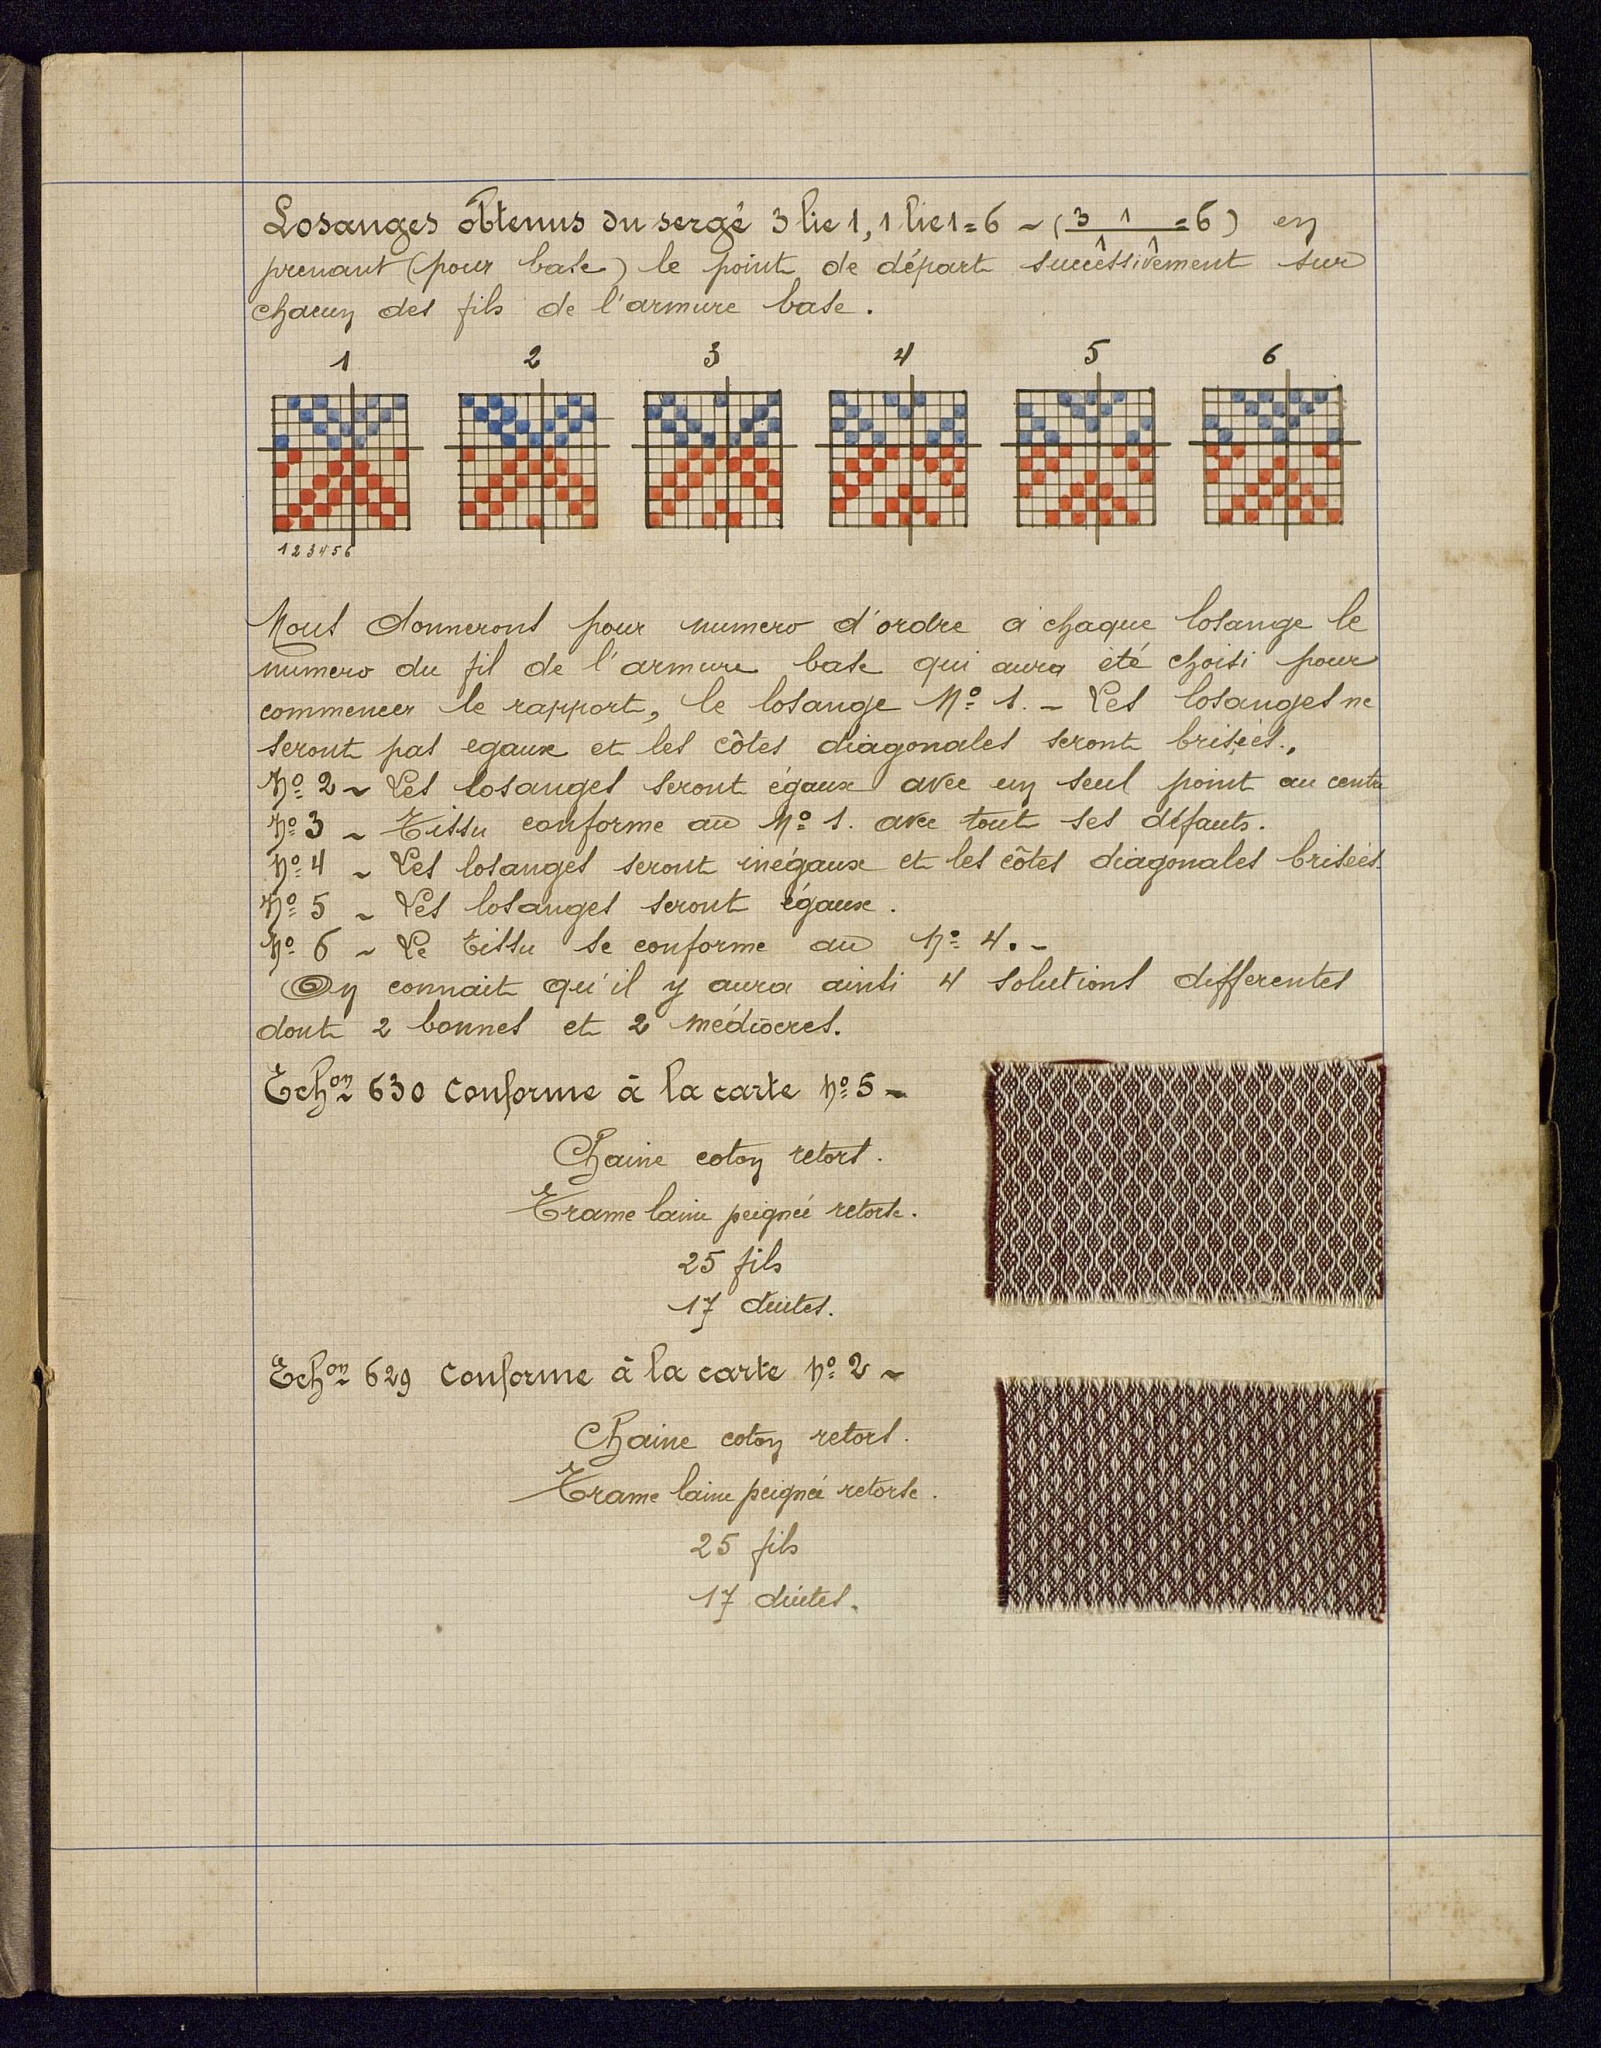 Losanges obtenus du sergé 3 lie 1, 1 lie 1 = 6 ~ (3 1 = 6) en
1 1
prenant (pour base) le point de départ successivement sur
chacun des fils de l'armure base.
1 2 3 4 5 6
1 2 3 4 5 6
Nous donnerons pour numero d'ordre a chaque losange le
numero du fil de l'armure base qui aura été choisi pour
commencer le rapport, le losange Nº 1. - Les losanges ne
seront pas egaux et les côtes diagonales seront brisées.,
Nº 2 ~ Les losanges seront égaux avec un seul point au centre
Nº 3 ~ Tissu conforme au Nº 1. avec tout ses défauts.
Nº 4 ~ Les losanges seront inégaux et les côtes diagonales brisées.
Nº 5 ~ Les losanges seront égaux.
Nº 6 ~ Le tissu se conforme au Nº 4. -
On connait qu'il y aura ainsi 4 solutions differentes
dont 2 bonnes et 2 médiocres.
Echon 630 conforme à la carte Nº 5 ~
Chaine coton retors.
Trame laine peignée retorse.
25 fils
17 duites.
Echon 629 conforme à la carte Nº 2 ~
Chaine coton retors.
Trame laine peignée retorse.
25 fils
17 duites.